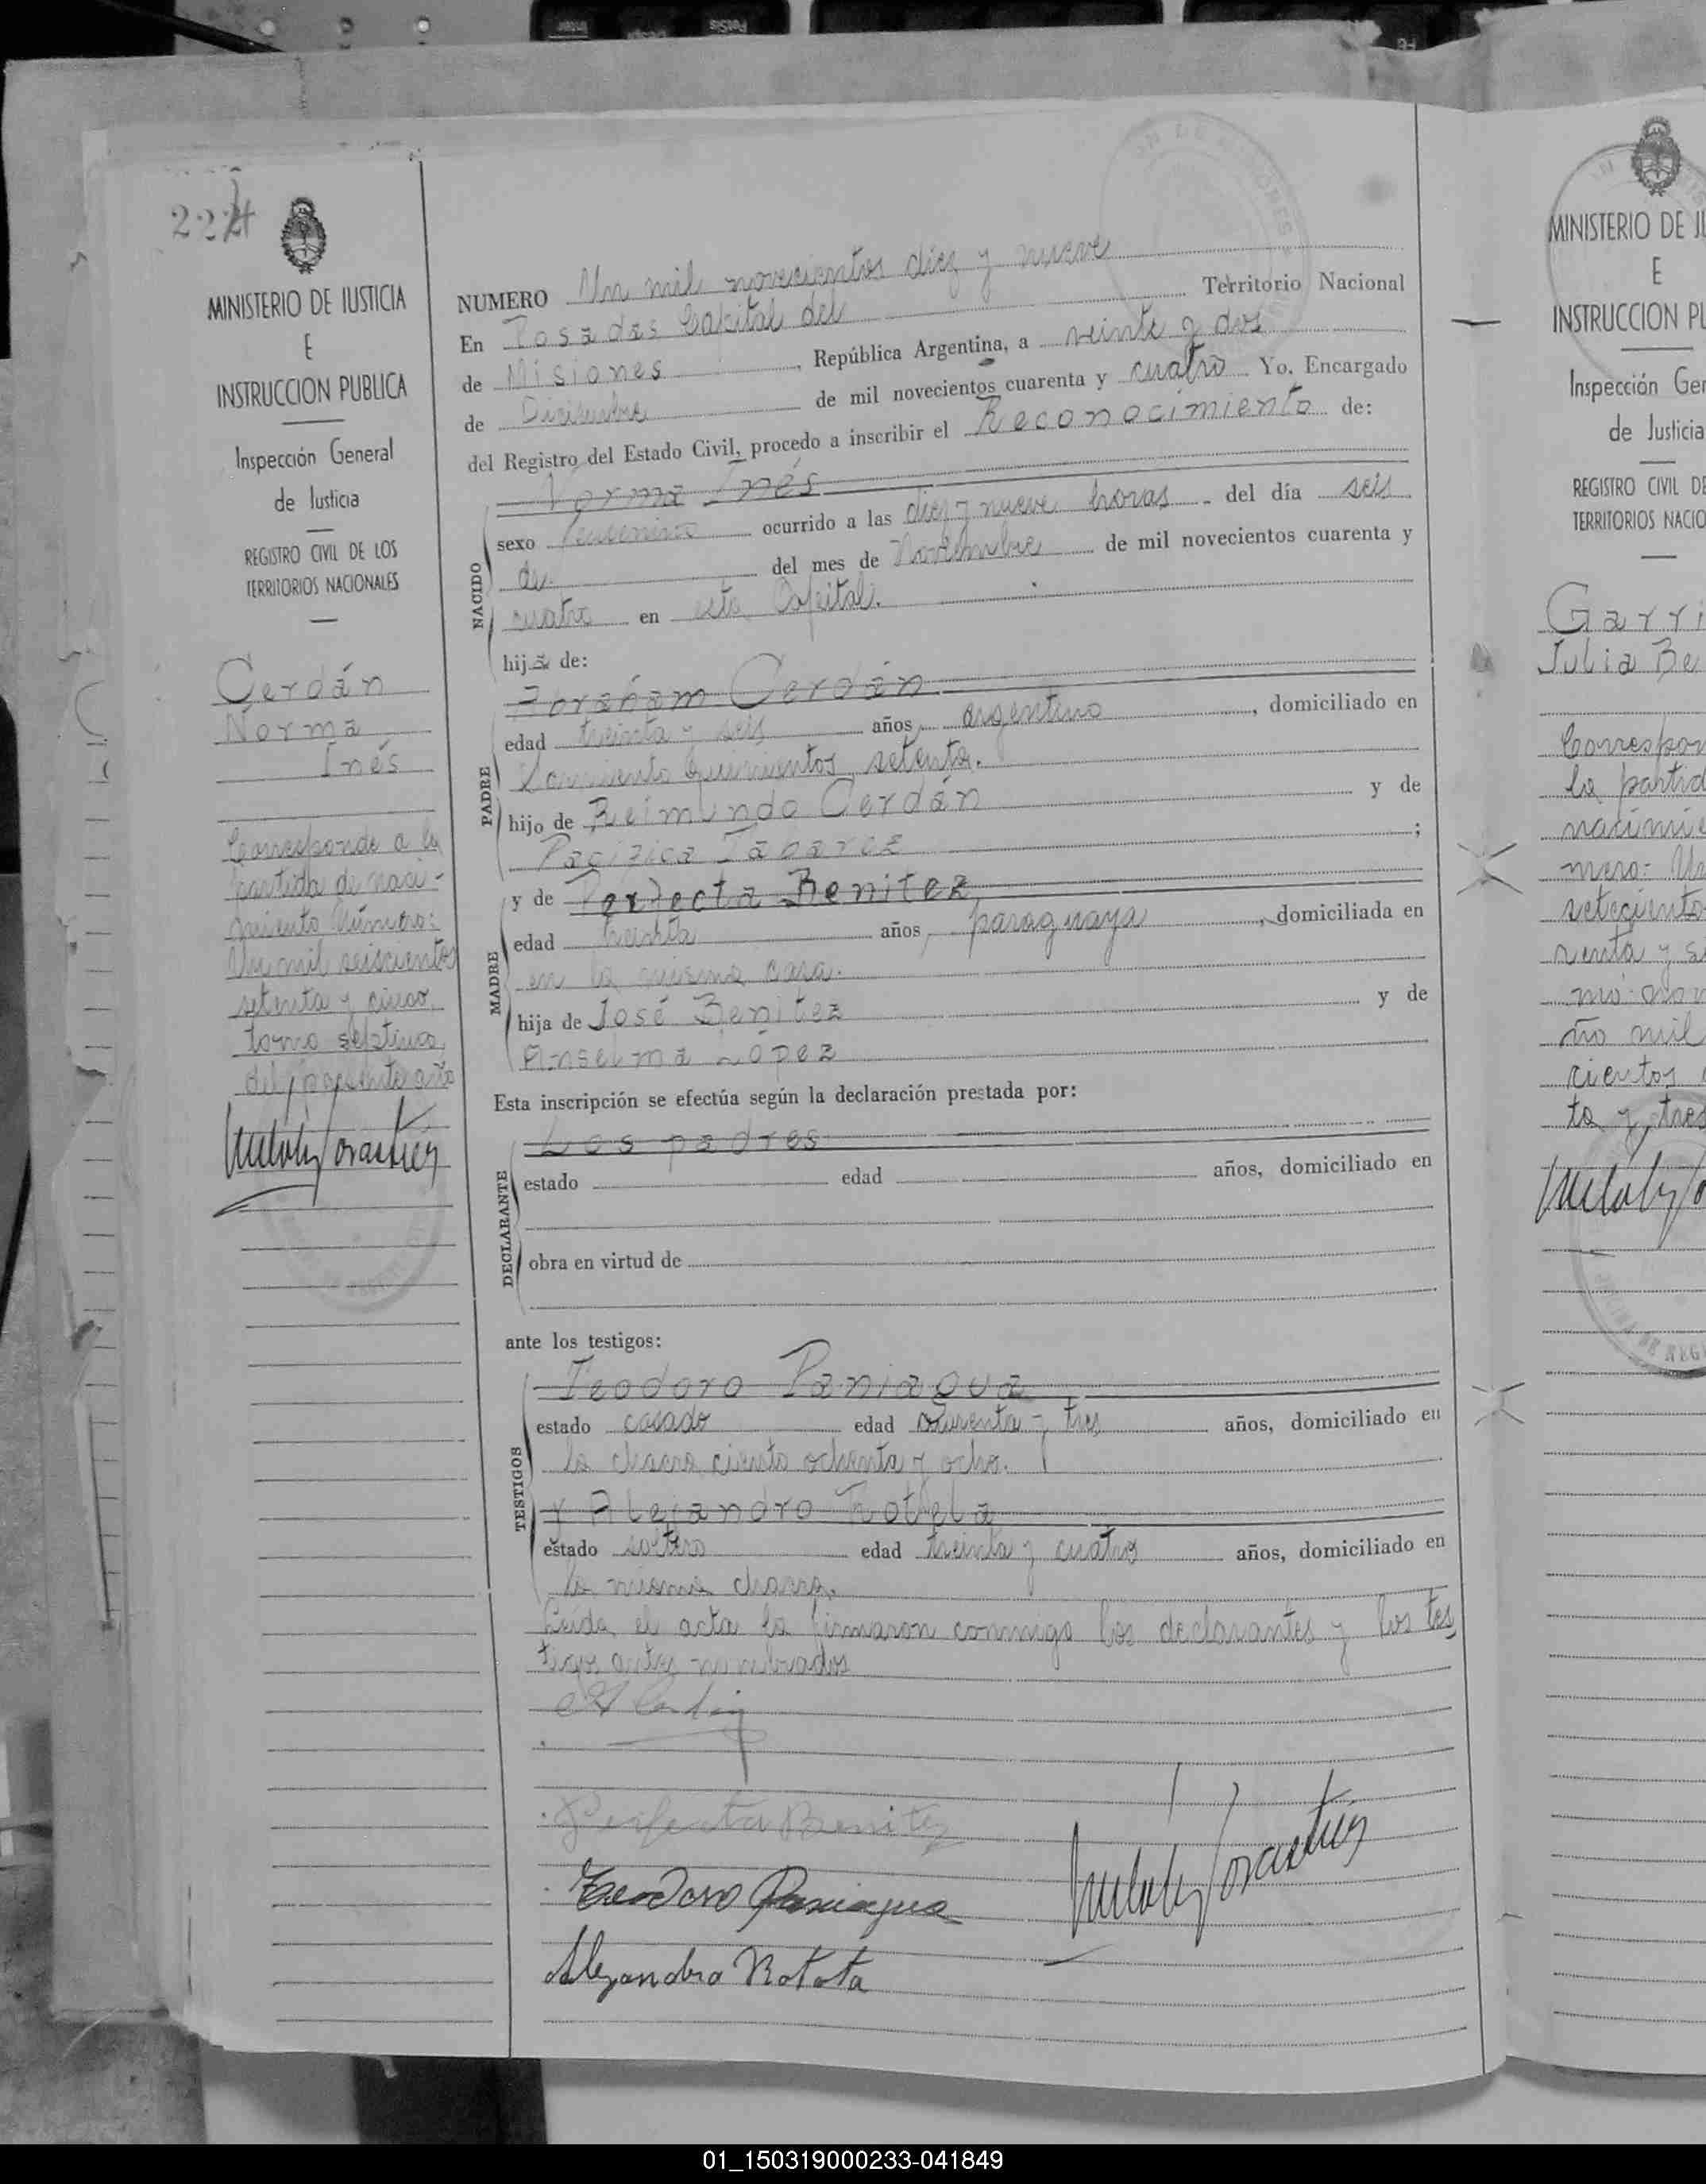 MINISTERIO DE JUSTICIA
E
INSTRUCCION PUBLICA
Inspección General
de Justicia
REGISTRO CIVIL DE LOS
TERRITORIOS NACIONALES
Cerdán
Norma
Inés
Corresponde a la
partida de naci-
miento número:
Un mil seiscientos
setenta y cinco,
tomo séptimo
del presente año
NUMERO Un mil novecientos diez y nueve
En Posadas Capital del Territorio Nacional
de Misiones, República Argentina, a veinte y dos
de Diciembre de mil novecientos cuarenta y cuatro Yo, Encargado
del Registro del Estado Civil, procedo a inscribir el Reconocimiento de:
Norma Inés
NACIDO
sexo femenino ocurrido a las diez y nueve horas del día seis
de del mes de Noviembre de mil novecientos cuarenta y
cuatro en esta Capital.
hija de:
PADRE
Abrahám Cerdán
edad treinta y seis años, argentino, domiciliado en
Sarmiento quinientos setenta.
hijo de Reimundo Cerdán y de
Pacífica Tabarez;
MADRE
y de Perfecta Benitez
edad treinta años, paraguaya, domiciliada en
en la misma casa.
hija de José Benitez y de
Anselma López
Esta inscripción se efectúa según la declaración prestada por:
DECLARANTE
Los padres
estado edad años, domiciliado en
obra en virtud de
ante los testigos:
TESTIGOS
Teodoro Paniagua
estado casado edad cuarenta y tres años, domiciliado en
la chacra ciento ochenta y ocho.
y Alejandro Rotela
estado soltero edad treinta y cuatro años, domiciliado en
la misma chacra.
Leída el acta la firmaron conmigo los declarantes y los tes
tigos antes nombrados
Perfecta Benitez
Teodoro Paniagua
Alejandro Rotela
MINISTERIO DE JU
E
INSTRUCCION PU
Inspección Gen
de Justicia
REGISTRO CIVIL DE
TERRITORIOS NACIO
Garri
Julia Be
Correspon
la partid
nacimie
mero: Un
setecientos
renta y
mil
cientos
ta y tres
01_150319000233-041849